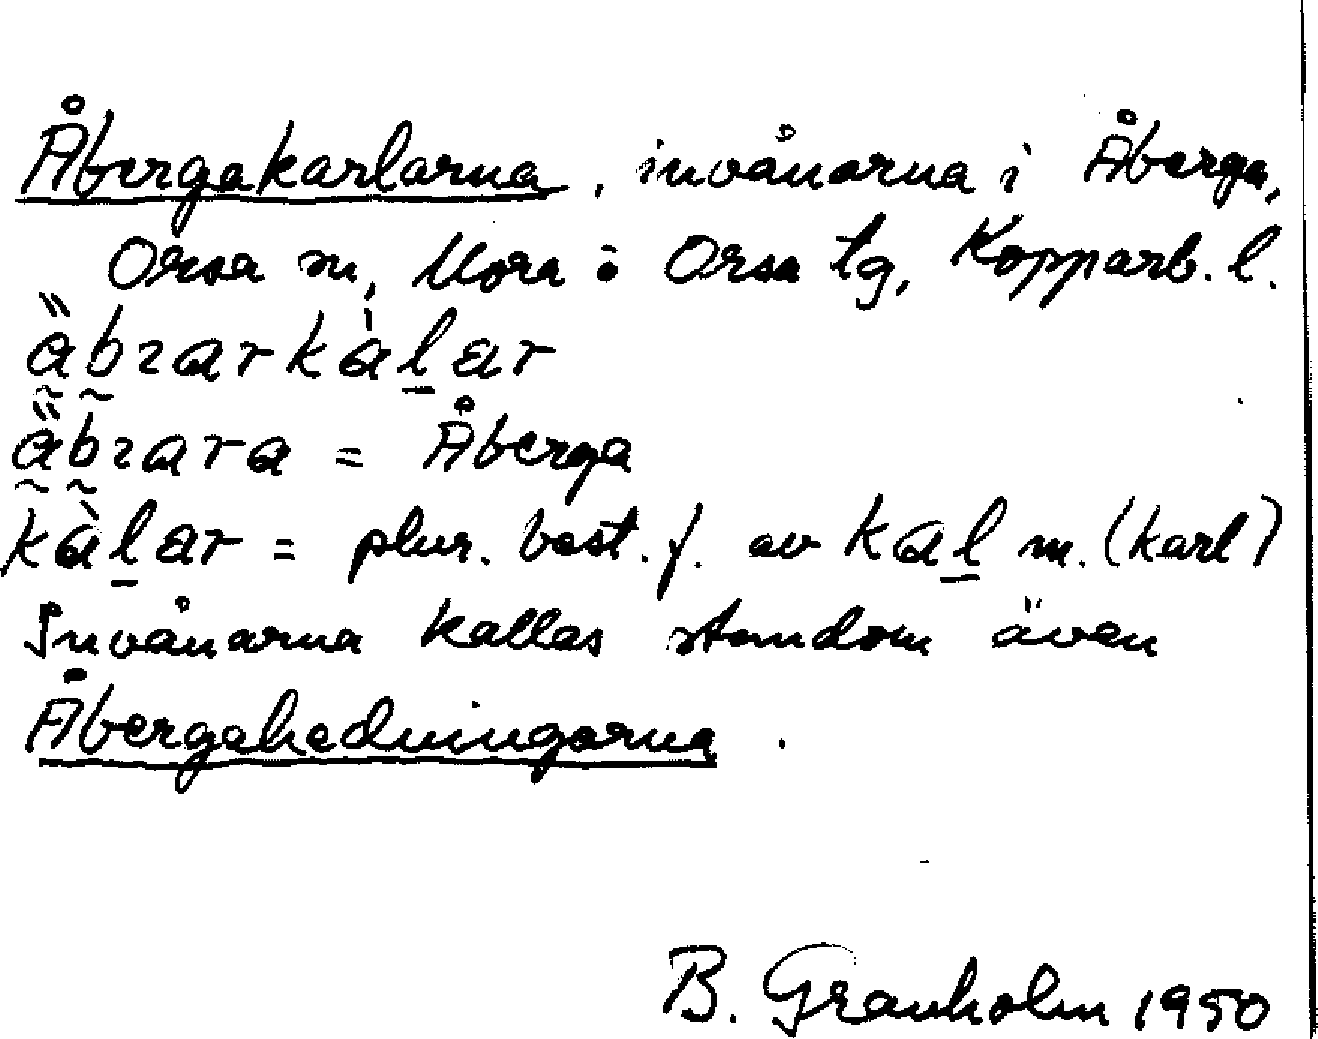 Åbergakarlarna, invånarna i Åberga,
Orsa m, Mora o Orsa tg, Kopparb. l.
äbzarkàl̲ar
äbzara = Åberga
kàl̲ar = plur. best. f. av kal̲ m. (karl)
Invånarna kallas stundom även
Åbergahedningarna.
B. Granholm 1950